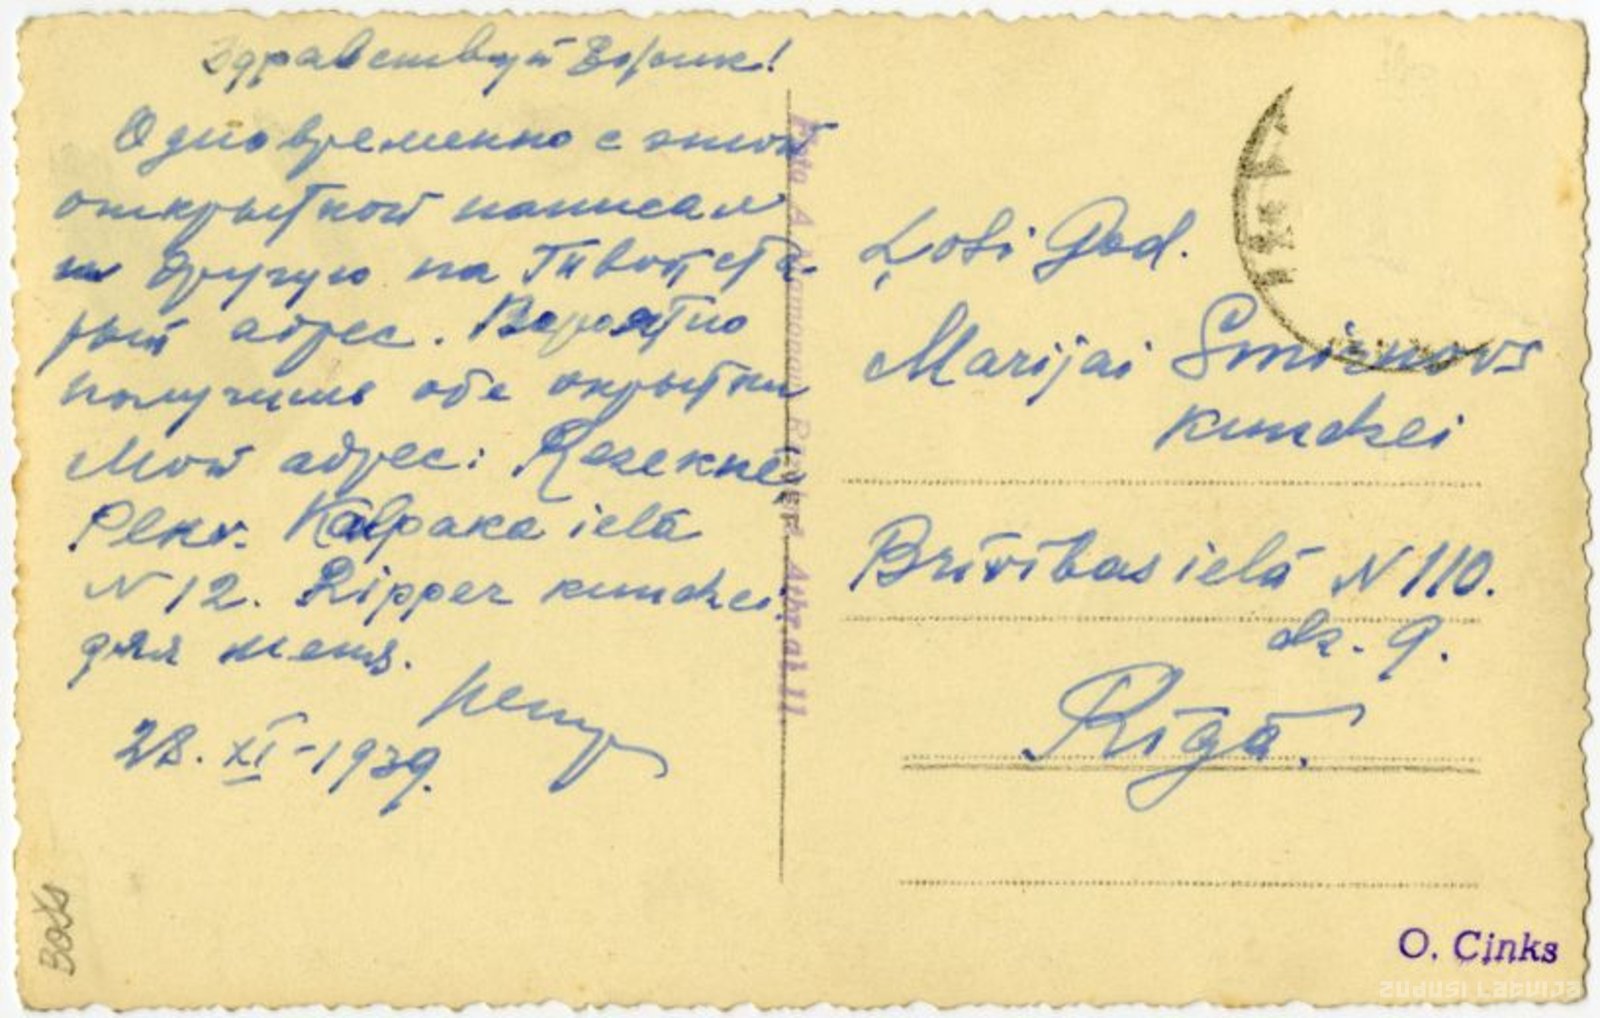 Здравствуй Борик!
Одновременно с этой
открыткой написал
и другую на Твой ста-
рый адрес. Вероятно
получишь обе окрытки
Мой адрес: Rezeknē,
Plkv. Kalpaka ielā
N 12. Lipper kundzei
для меня.
28. XI-1939.
Ļoti God.
Marijai Smirnovs
kundzei
Brīvības ielā N 110.
dz. 9.
Rīgā.
O. Cinks
ZUDUSI LATVIJA